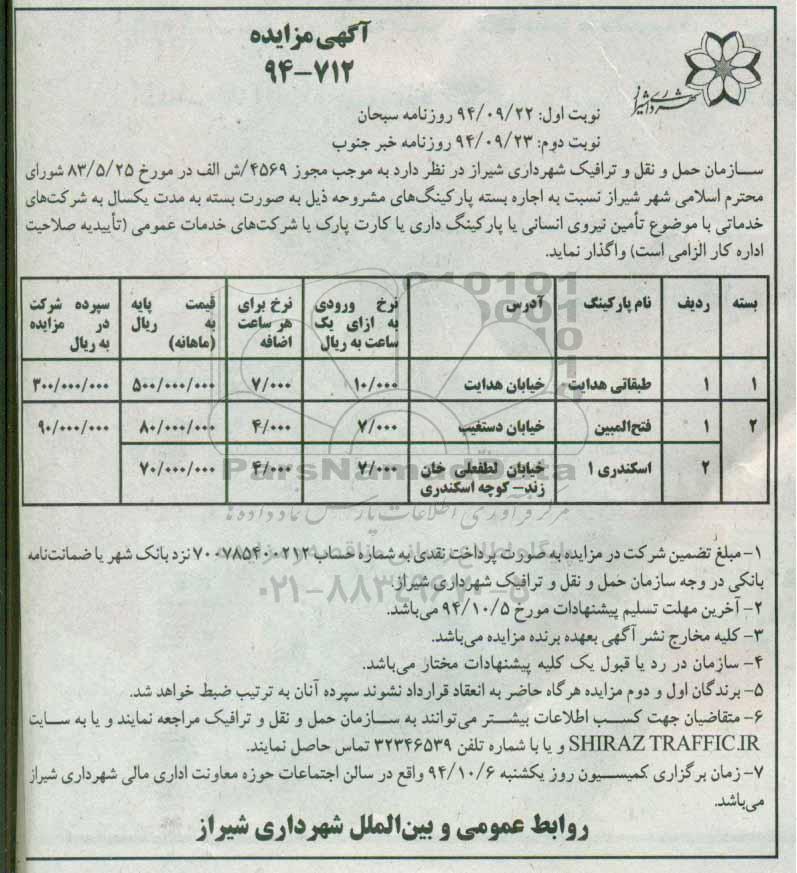 آگهی مزایده
۹۴-۷۱۲
شهرداری شیراز
نوبت اول: ۹۴/۰۹/۲۲ روزنامه سبحان
نوبت دوم: ۹۴/۰۹/۲۳ روزنامه خبر جنوب
سـازمان حمل و نقل و ترافیک شهرداری شیراز در نظر دارد به موجب مجوز ۴۵۶۹/ش الف در مورخ ۸۳/۵/۲۵ شورای
محترم اسلامی شهر شیراز نسبت به اجاره بسته پارکینگ‌های مشروحه ذیل به صورت بسته به مدت یکسال به شرکت‌های
خدماتی با موضوع تأمین نیروی انسانی یا پارکینگ داری یا کارت پارک یا شرکت‌های خدمات عمومی (تأییدیه صلاحیت
اداره کار الزامی است) واگذار نماید.
بسته | ردیف | نام پارکینگ | آدرس | نرخ ورودی به ازای یک ساعت به ریال | نرخ برای هر ساعت اضافه | قیمت پایه به ریال (ماهانه) | سپرده شرکت در مزایده به ریال
۱ | ۱ | طبقاتی هدایت | خیابان هدایت | ۱۰/۰۰۰ | ۷/۰۰۰ | ۵۰۰/۰۰۰/۰۰۰ | ۳۰۰/۰۰۰/۰۰۰
۲ | ۱ | فتح‌المبین | خیابان دستغیب | ۷/۰۰۰ | ۴/۰۰۰ | ۸۰/۰۰۰/۰۰۰ | ۹۰/۰۰۰/۰۰۰
۲ | اسکندری ۱ | خیابان لطفعلی خان زند- کوچه اسکندری | ۷/۰۰۰ | ۴/۰۰۰ | ۷۰/۰۰۰/۰۰۰
ParsNamadData
مرکز فرآوری اطلاعات پارس نماد داده ها
پایگاه اطلاع رسانی مناقصه و مزایده
۰۲۱-۸۸۳۴۹۶۷۰-۵
۱- مبلغ تضمین شرکت در مزایده به صورت پرداخت نقدی به شماره حساب ۷۰۰۷۸۵۴۰۰۲۱۲ نزد بانک شهر یا ضمانت‌نامه
بانکی در وجه سازمان حمل و نقل و ترافیک شهرداری شیراز.
۲- آخرین مهلت تسلیم پیشنهادات مورخ ۹۴/۱۰/۵ می‌باشد.
۳- کلیه مخارج نشر آگهی بعهده برنده مزایده می‌باشد.
۴- سازمان در رد یا قبول یک کلیه پیشنهادات مختار می‌باشد.
۵- برندگان اول و دوم مزایده هرگاه حاضر به انعقاد قرارداد نشوند سپرده آنان به ترتیب ضبط خواهد شد.
۶- متقاضیان جهت کسـب اطلاعات بیشـتر می‌توانند به سـازمان حمل و نقل و ترافیک مراجعه نمایند و یا به سـایت
SHIRAZ TRAFFIC.IR و یا با شماره تلفن ۳۲۳۴۶۵۳۹ تماس حاصل نمایند.
۷- زمان برگزاری کمیسـیون روز یکشنبه ۹۴/۱۰/۶ واقع در سالن اجتماعات حوزه معاونت اداری مالی شهرداری شیراز
می‌باشد.
روابط عمومی و بین‌الملل شهرداری شیراز